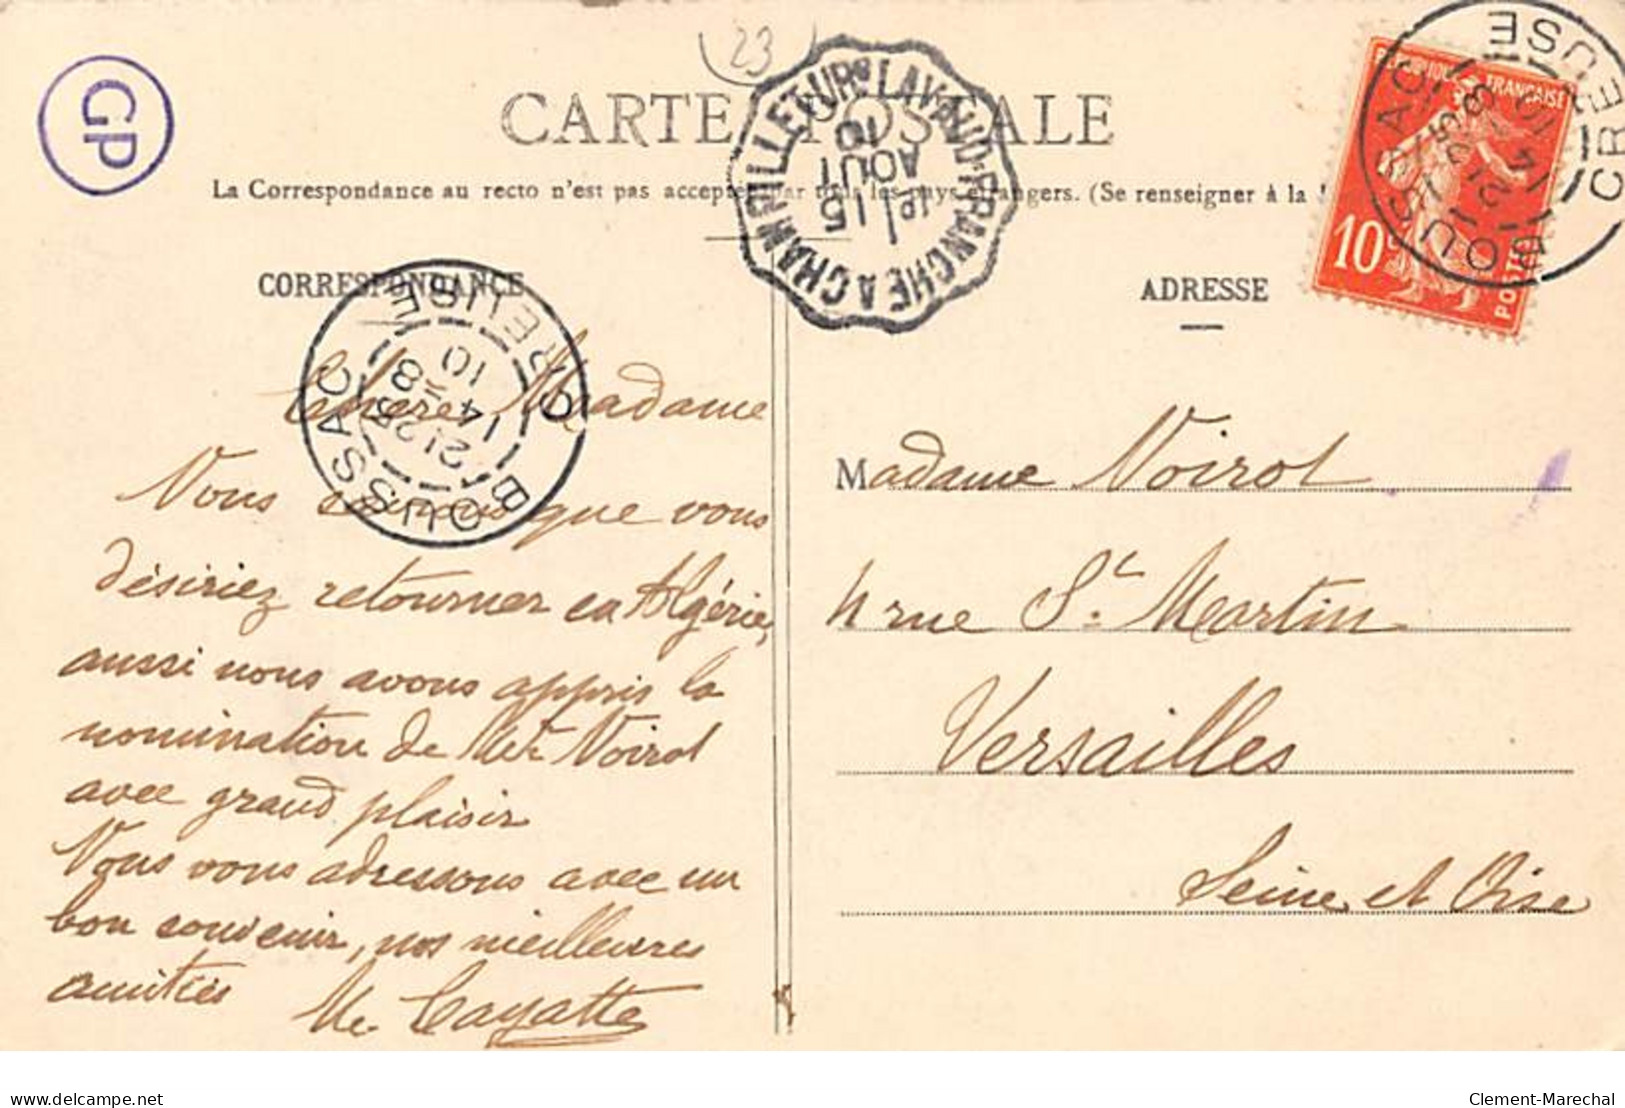 23
GP
CARTE POSTALE
La Correspondance au recto n'est pas acceptée par tous les pays étrangers. (Se renseigner à la
CORRESPONDANCE
ADRESSE
CHAMPILLET-URs LAVAUD-FRANCHE A
1e/15
AOUT
10
BOUSSAC
CREUSE
21 25
14 - 8
10
BOUSSAC
CREUSE
RÉPUBLIQUE FRANÇAISE
10c
POSTES
Chère Madame
Nous savons que vous
désiriez retourner en Algérie,
aussi nous avons appris la
nomination de Mr Noirot
avec grand plaisir
Nous vous adressons avec un
bon souvenir, nos meilleures
amitiés
Me Cayatte
Madame Noirot
4 rue St Martin
Versailles
Seine et Oise
delcampe.net
Clement-Marechal